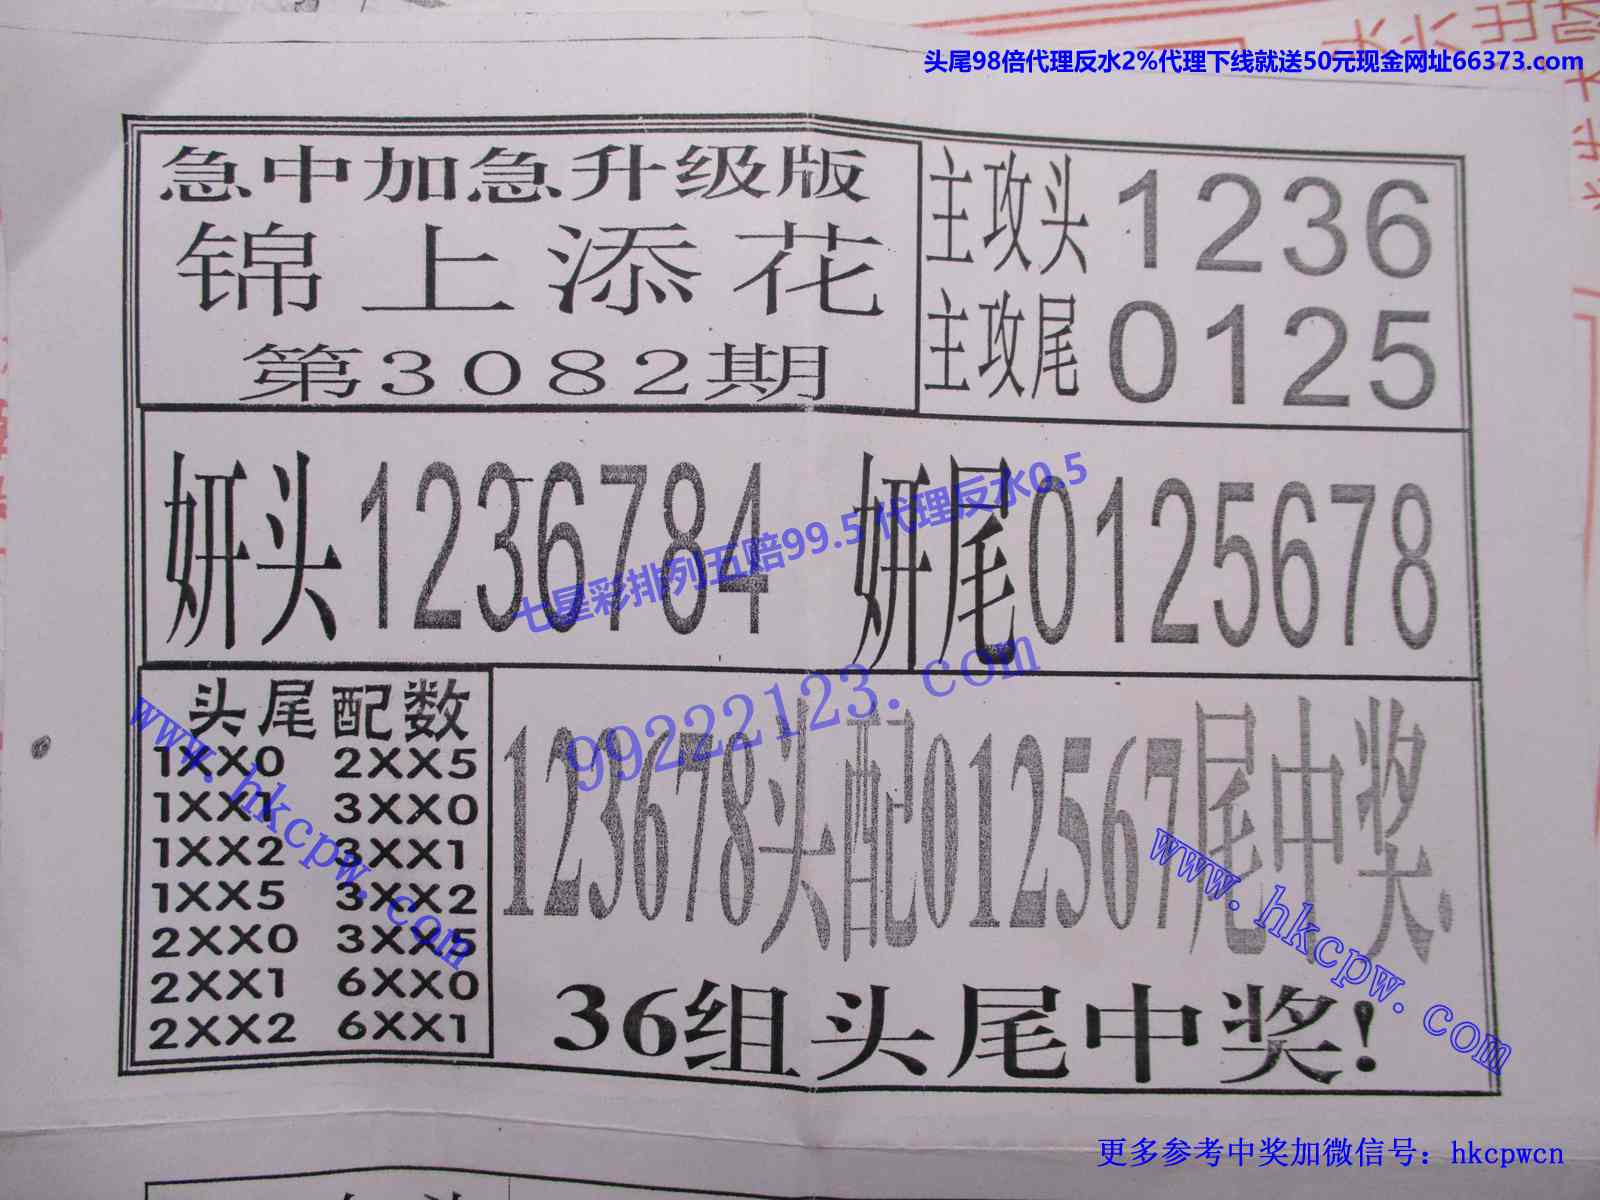 头尾98倍代理反水2%代理下线就送50元现金网址66373.com
急中加急升级版
锦上添花
第3082期
主攻头1236
主攻尾0125
妍头1236784 妍尾0125678
七星彩排列五赔99.5 代理反水0.5
99222123.com
头尾配数
1XX0 2XX5
1XX1 3XX0
1XX2 3XX1
1XX5 3XX2
2XX0 3XX5
2XX1 6XX0
2XX2 6XX1
www.hkcpw.com
123678头配012567尾中奖.
www.hkcpw.com
36组头尾中奖!
更多参考中奖加微信号：hkcpwcn